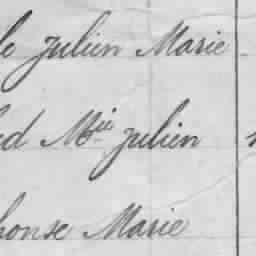 le Julien Marie
ed Mie julien
honse Marie